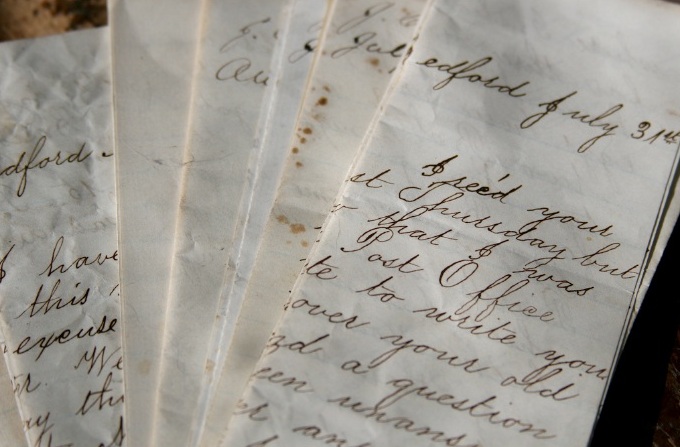 dford -
I have
this
excuse
We
thi
J.
Au
J. C
Jul
edford July 31st
I rec'd your
st Thursday but
r that I was
Post Office
te to write you
over your old
nd a question
een unans
er an